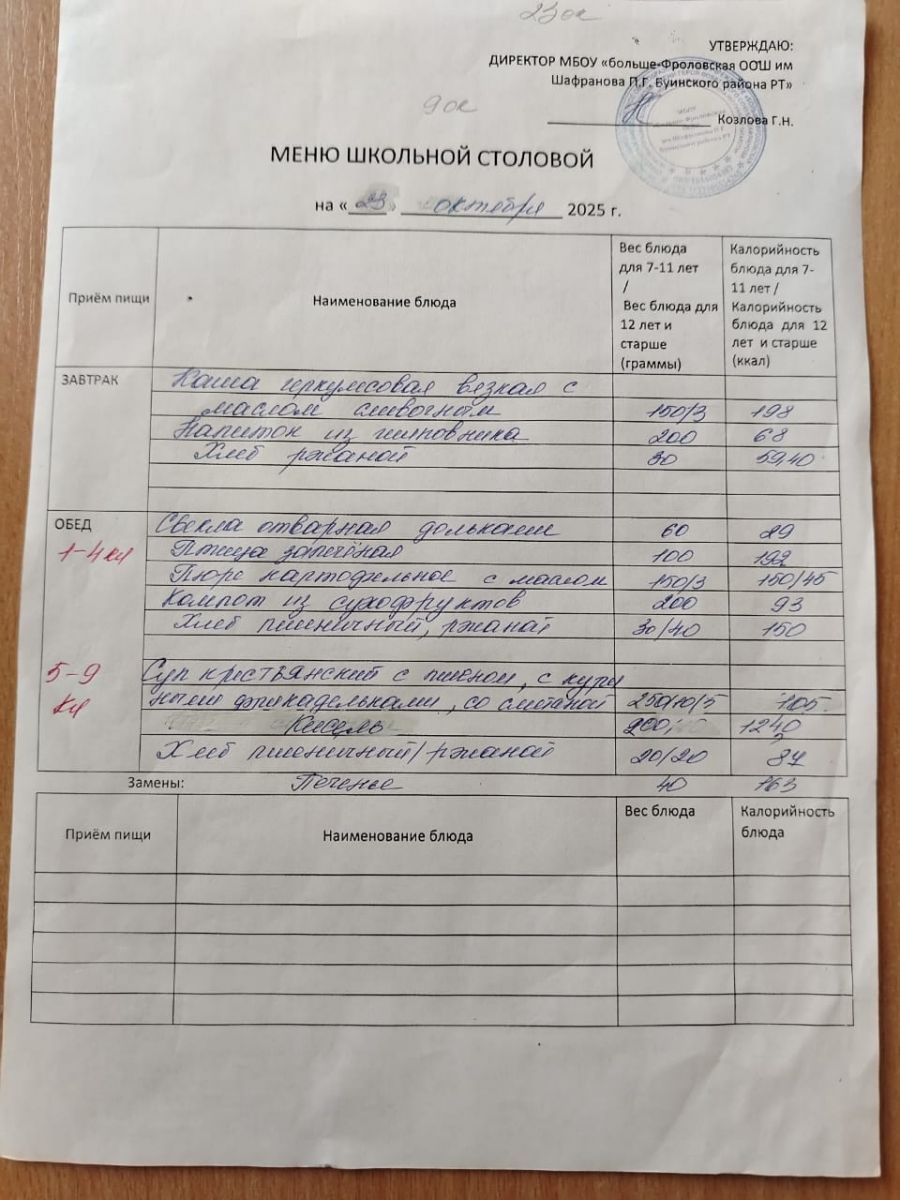 23 ок
УТВЕРЖДАЮ:
ДИРЕКТОР МБОУ «больше-Фроловская ООШ им
Шафранова П.Г. Буинского района РТ»
9 ок
Козлова Г.Н.
МЕНЮ ШКОЛЬНОЙ СТОЛОВОЙ
на «23» октября 2025 г.
Приём пищи
Наименование блюда
Вес блюда
для 7-11 лет
/
Вес блюда для
12 лет и
старше
(граммы)
Калорийность
блюда для 7-
11 лет /
Калорийность
блюда для 12
лет и старше
(ккал)
ЗАВТРАК
Каша геркулесовая вязкая с
маслом сливочным 150/3 198
Напиток из шиповника 200 68
Хлеб ржаной 30 59,40
ОБЕД
1-4 кл
Свекла отварная дольками 60 29
Птица запечёная 100 192
Пюре картофельное с маслом 150/3 150/45
Компот из сухофруктов 200 93
Хлеб пшеничный, ржаной 30/40 150
5-9
кл
Суп крестьянский с пшеном, с кури
ными фрикадельками, со сметаной 250/10/5 105
Кисель 200 1240
Хлеб пшеничный/ржаной 20/20
Замены: Печенье 40 163
Приём пищи
Наименование блюда
Вес блюда
Калорийность
блюда